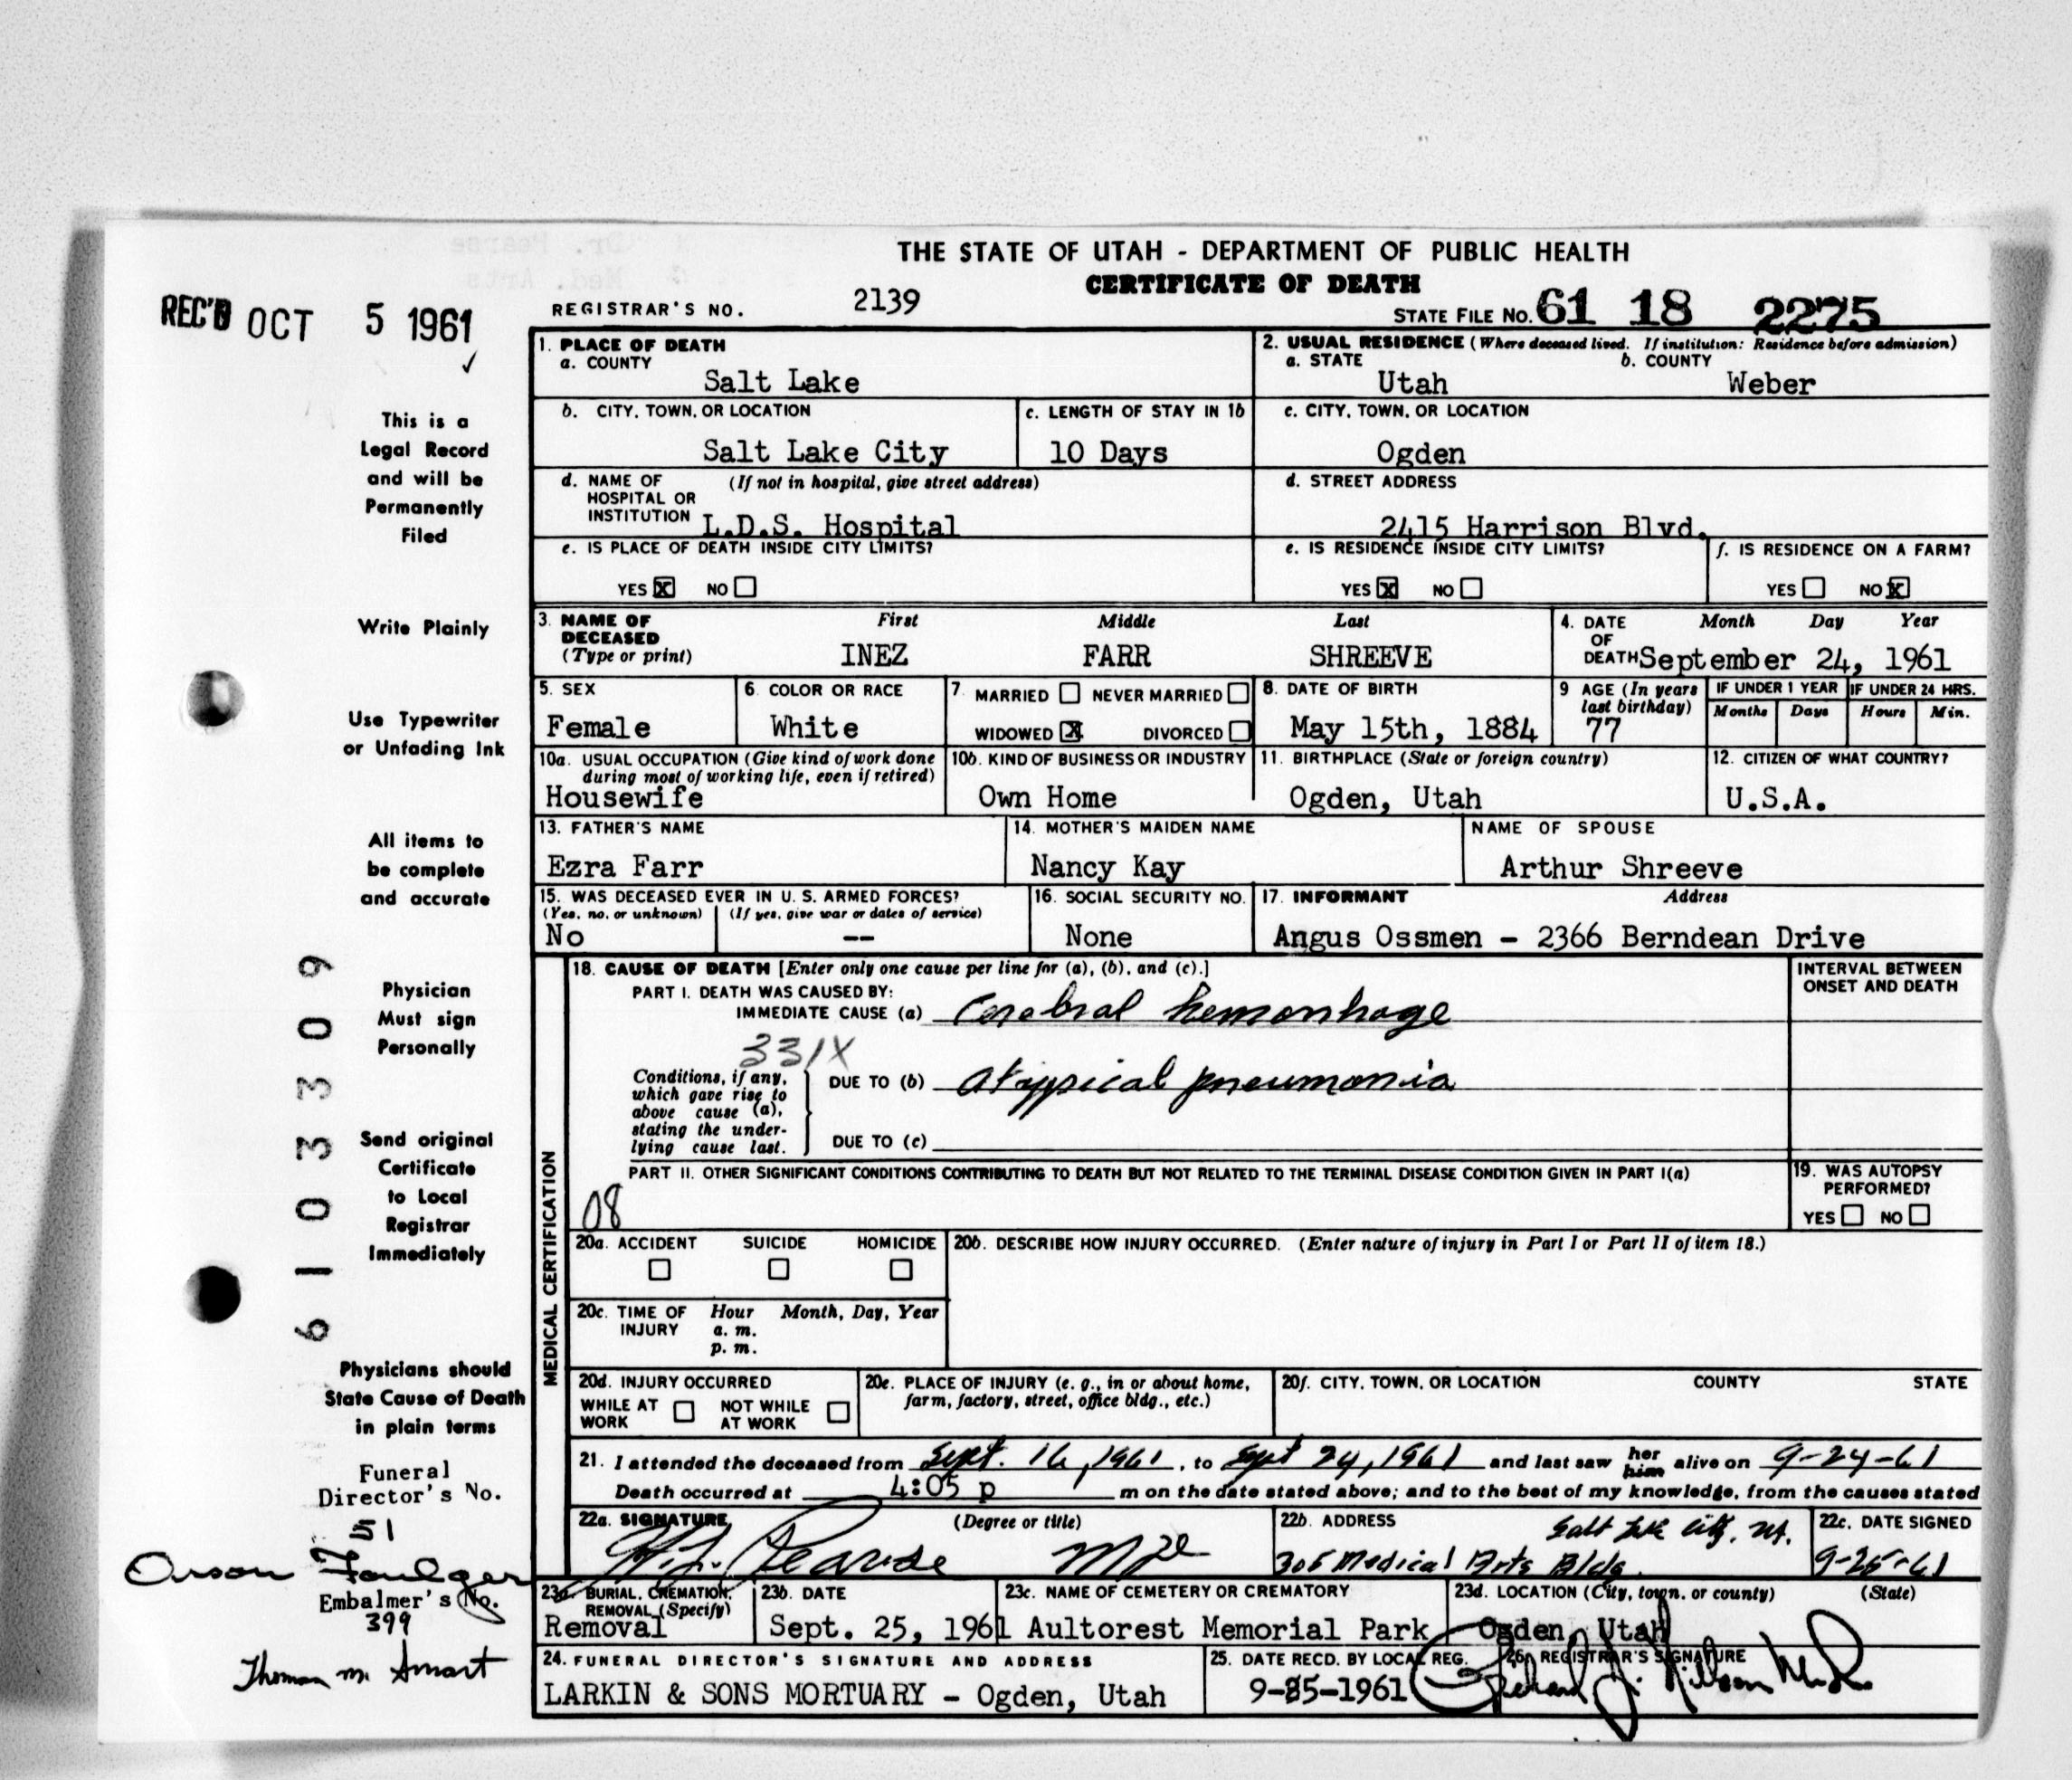 THE STATE OF UTAH - DEPARTMENT OF PUBLIC HEALTH
CERTIFICATE OF DEATH
REC'D OCT 5 1961
REGISTRAR'S NO. 2139
STATE FILE NO. 61 18 2275
This is a
Legal Record
and will be
Permanently
Filed
Write Plainly
Use Typewriter
or Unfading Ink
All items to
be complete
and accurate
Physician
Must sign
Personally
Send original
Certificate
to Local
Registrar
Immediately
Physicians should
State Cause of Death
in plain terms
Funeral
Director's No.
51
Orson Foulger
Embalmer's No.
399
Thomas M. Smart
6103309
1. PLACE OF DEATH
a. COUNTY
Salt Lake
2. USUAL RESIDENCE (Where deceased lived. If institution: Residence before admission)
a. STATE b. COUNTY
Utah Weber
b. CITY, TOWN, OR LOCATION
Salt Lake City
c. LENGTH OF STAY IN 1b
10 Days
c. CITY, TOWN, OR LOCATION
Ogden
d. NAME OF (If not in hospital, give street address)
HOSPITAL OR
INSTITUTION L.D.S. Hospital
d. STREET ADDRESS
2415 Harrison Blvd.
e. IS PLACE OF DEATH INSIDE CITY LIMITS?
YES X NO
e. IS RESIDENCE INSIDE CITY LIMITS?
YES X NO
f. IS RESIDENCE ON A FARM?
YES NO X
3. NAME OF First Middle Last
DECEASED
(Type or print) INEZ FARR SHREEVE
4. DATE Month Day Year
OF
DEATH September 24, 1961
5. SEX
Female
6. COLOR OR RACE
White
7. MARRIED NEVER MARRIED
WIDOWED X DIVORCED
8. DATE OF BIRTH
May 15th, 1884
9 AGE (In years
last birthday)
77
IF UNDER 1 YEAR IF UNDER 24 HRS.
Months Days Hours Min.
10a. USUAL OCCUPATION (Give kind of work done
during most of working life, even if retired)
Housewife
10b. KIND OF BUSINESS OR INDUSTRY
Own Home
11. BIRTHPLACE (State or foreign country)
Ogden, Utah
12. CITIZEN OF WHAT COUNTRY?
U.S.A.
13. FATHER'S NAME
Ezra Farr
14. MOTHER'S MAIDEN NAME
Nancy Kay
NAME OF SPOUSE
Arthur Shreeve
15. WAS DECEASED EVER IN U. S. ARMED FORCES?
(Yes, no. or unknown) (If yes, give war or dates of service)
No --
16. SOCIAL SECURITY NO.
None
17. INFORMANT Address
Angus Ossmen - 2366 Berndean Drive
MEDICAL CERTIFICATION
18. CAUSE OF DEATH [Enter only one cause per line for (a), (b), and (c).]
INTERVAL BETWEEN
ONSET AND DEATH
PART I. DEATH WAS CAUSED BY:
IMMEDIATE CAUSE (a) Cerebral hemorrhage
331X
Conditions, if any,
which gave rise to
above cause (a),
stating the under-
lying cause last.
DUE TO (b) atypical pneumonia
DUE TO (c)
PART II. OTHER SIGNIFICANT CONDITIONS CONTRIBUTING TO DEATH BUT NOT RELATED TO THE TERMINAL DISEASE CONDITION GIVEN IN PART I(a)
08
19. WAS AUTOPSY
PERFORMED?
YES NO
20a. ACCIDENT SUICIDE HOMICIDE
20b. DESCRIBE HOW INJURY OCCURRED. (Enter nature of injury in Part I or Part II of item 18.)
20c. TIME OF Hour Month, Day, Year
INJURY a. m.
p. m.
20d. INJURY OCCURRED
WHILE AT NOT WHILE
WORK AT WORK
20e. PLACE OF INJURY (e. g., in or about home,
farm, factory, street, office bldg., etc.)
20f. CITY, TOWN, OR LOCATION COUNTY STATE
21. I attended the deceased from Sept. 16, 1961, to Sept 24, 1961 and last saw her him alive on 9-24-61
Death occurred at 4:05 p m on the date stated above; and to the best of my knowledge, from the causes stated
22a. SIGNATURE (Degree or title)
Pearse MD
22b. ADDRESS Salt Lake City, Ut.
305 Medical Arts Bldg.
22c. DATE SIGNED
9-25-61
23a. BURIAL, CREMATION,
REMOVAL (Specify)
Removal
23b. DATE
Sept. 25, 1961
23c. NAME OF CEMETERY OR CREMATORY
Aultorest Memorial Park
23d. LOCATION (City, town, or county) (State)
Ogden, Utah
24. FUNERAL DIRECTOR'S SIGNATURE AND ADDRESS
LARKIN & SONS MORTUARY - Ogden, Utah
25. DATE RECD. BY LOCAL REG.
9-25-1961
26. REGISTRAR'S SIGNATURE
Richard J. Nilson M.D.